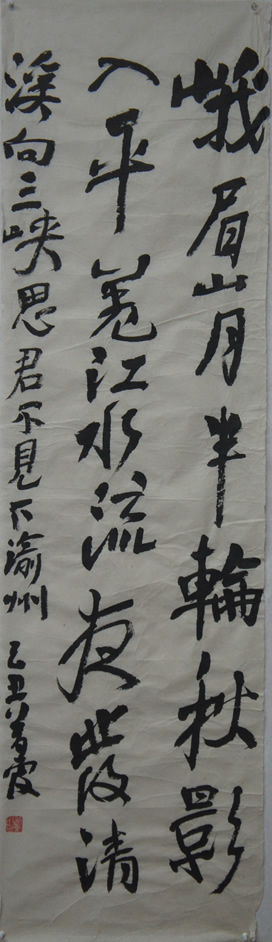 峨眉山月半輪秋影
入平羌江水流夜發清
溪向三峽思君不見下渝州 乙丑 霞